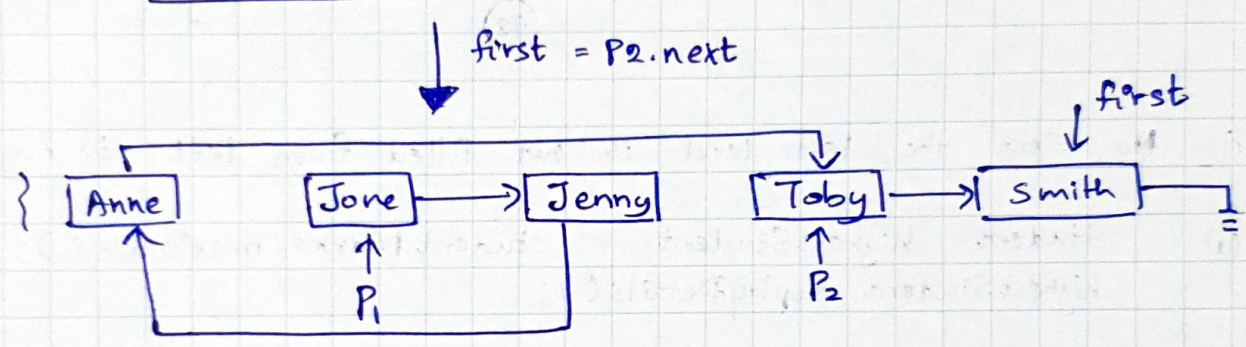 first = P2.next
first
Anne Jone Jenny Toby Smith
P1 P2